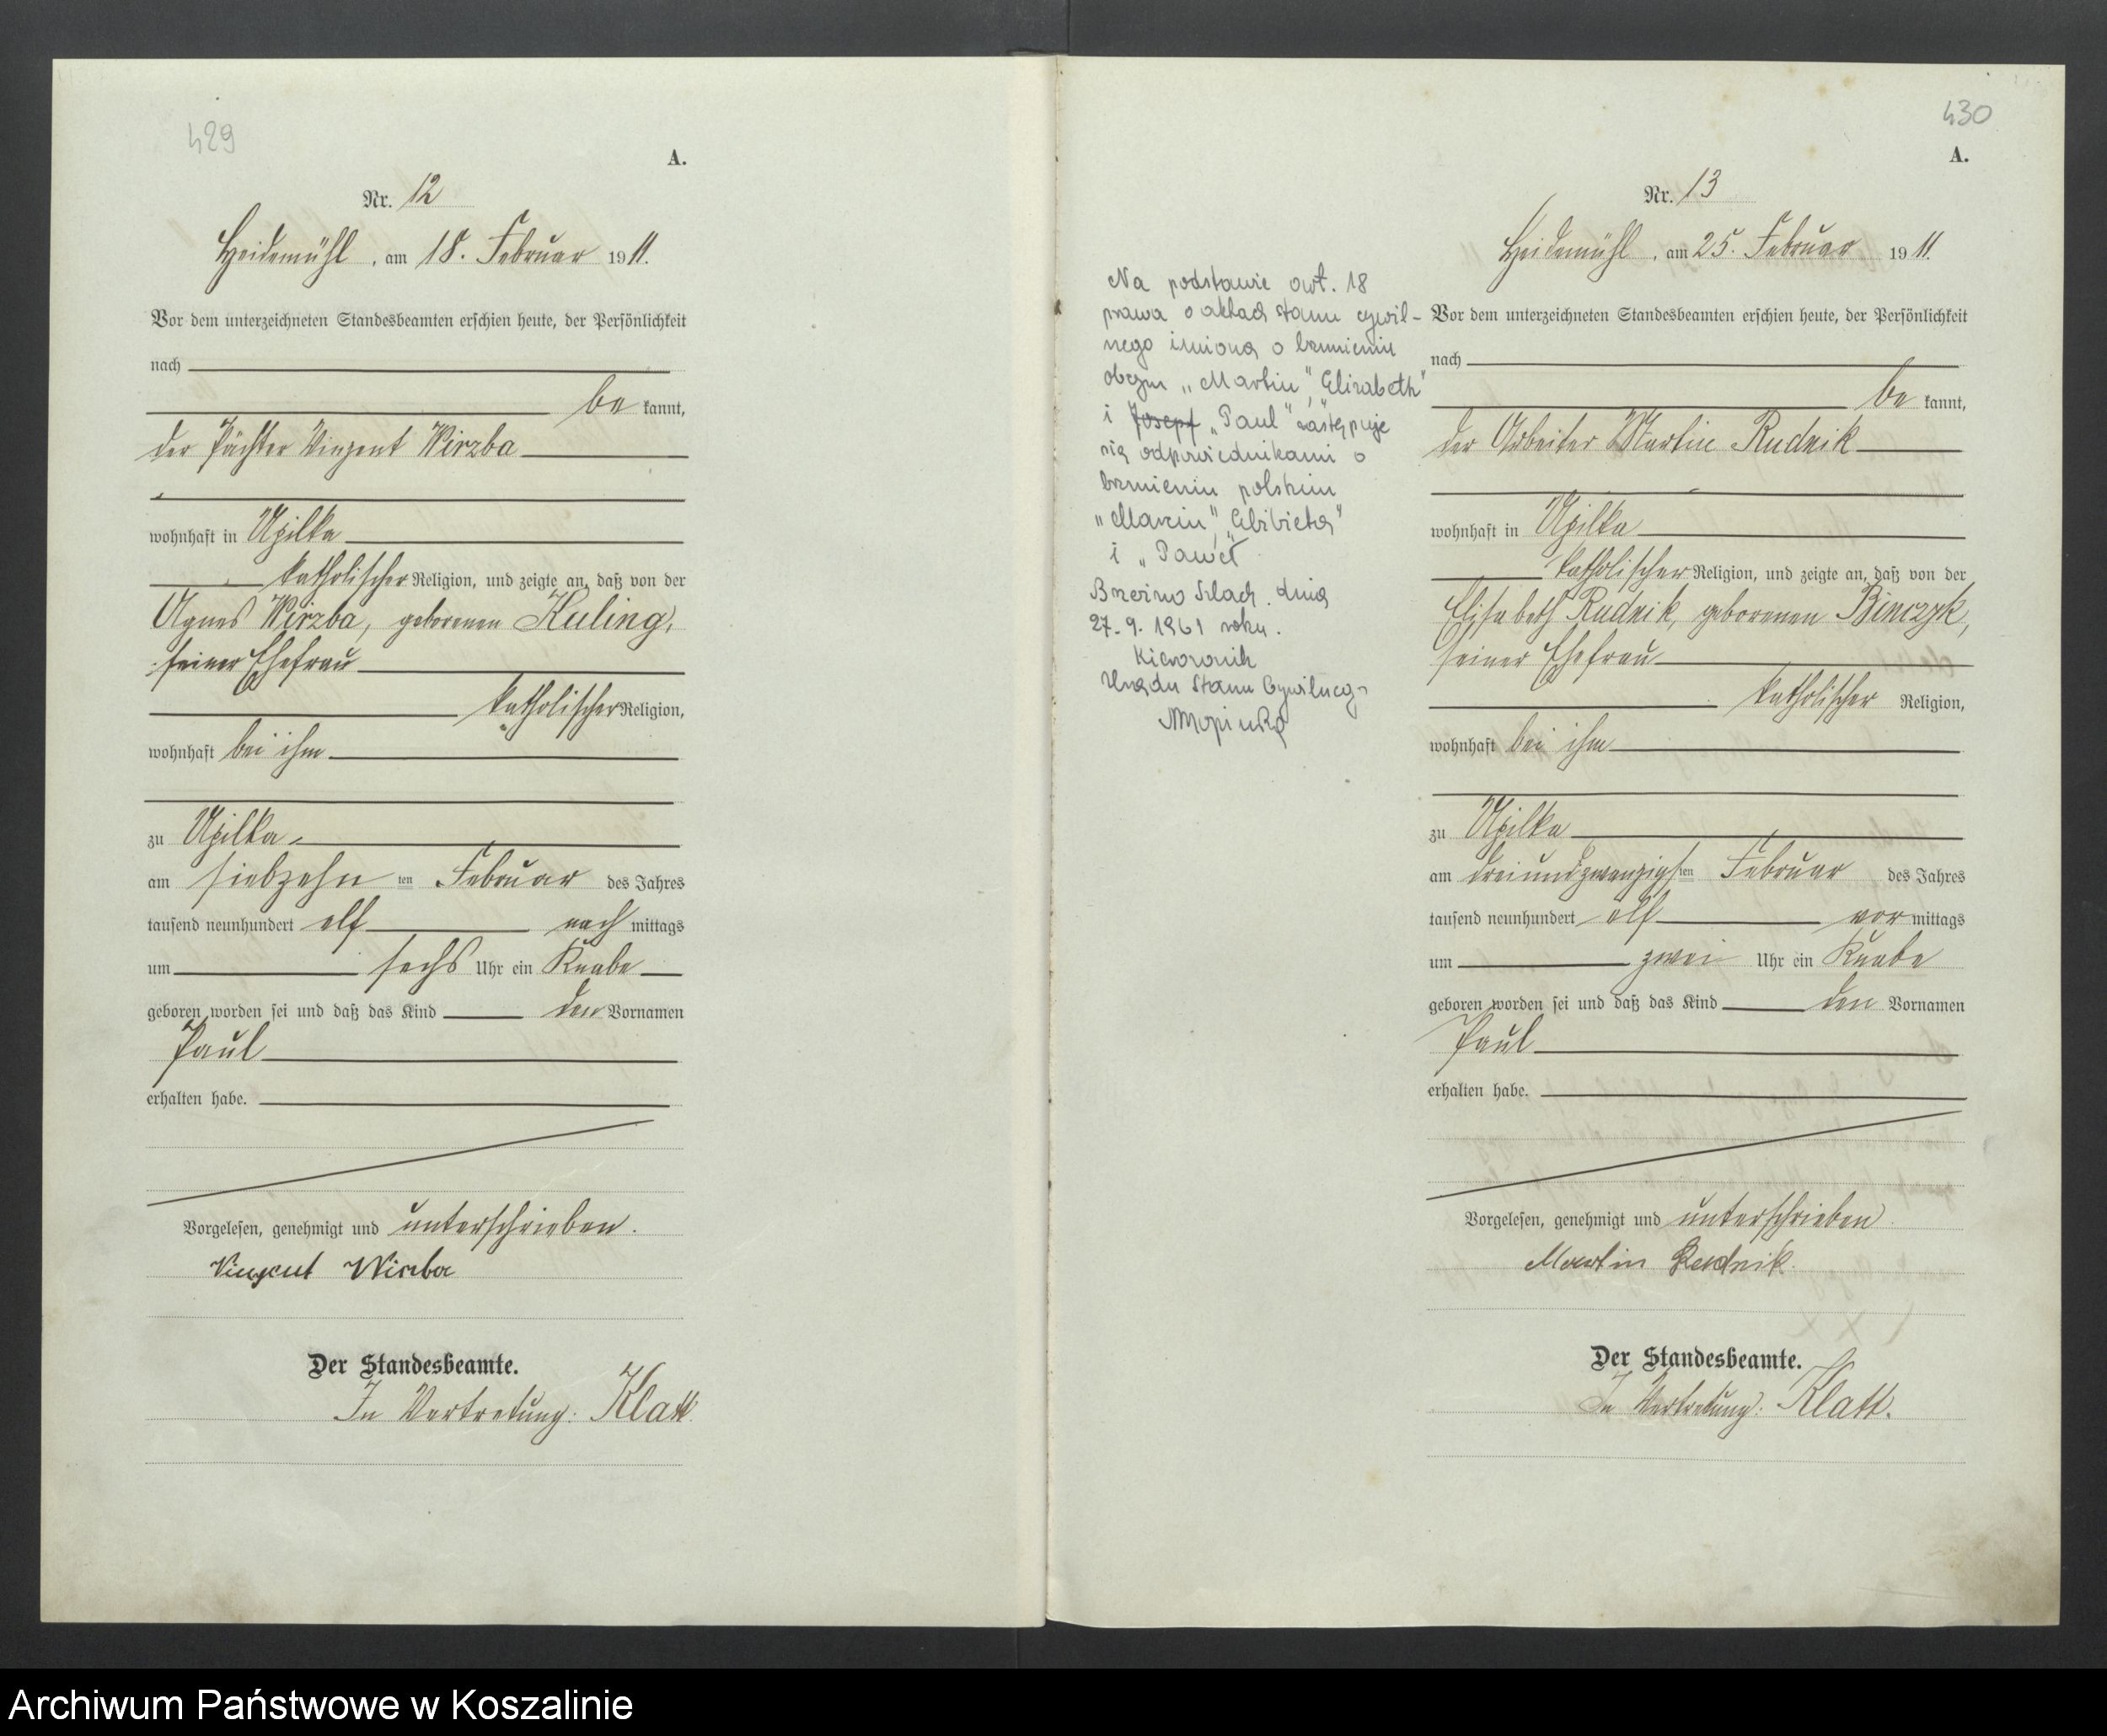 429
A.
Nr. 12
Heidemühl, am 18. Februar 1911.
Vor dem unterzeichneten Standesbeamten erschien heute, der Persönlichkeit
nach
be kannt,
der Pächter Vinzent Wirzba
wohnhaft in Upilka
katholischer Religion, und zeigte an, daß von der
Agnes Wirzba, geborenen Kuling,
seiner Ehefrau
katholischer Religion,
wohnhaft bei ihm
zu Upilka
am siebzehn ten Februar des Jahres
tausend neunhundert elf nach mittags
um sechs Uhr ein Knabe
geboren worden sei und daß das Kind den Vornamen
Paul
erhalten habe.
Vorgelesen, genehmigt und unterschrieben.
Vinzent Wirzba
Der Standesbeamte.
In Vertretung: Klatt.
430
A.
Nr. 13
Heidemühl, am 25. Februar 1911.
Vor dem unterzeichneten Standesbeamten erschien heute, der Persönlichkeit
nach
be kannt,
der Arbeiter Martin Rudnik
wohnhaft in Upilka
katholischer Religion, und zeigte an, daß von der
Elisabeth Rudnik, geborenen Binczyk,
seiner Ehefrau
katholischer Religion,
wohnhaft bei ihm
zu Upilka
am dreiundzwanzigsten Februar des Jahres
tausend neunhundert elf vor mittags
um zwei Uhr ein Knabe
geboren worden sei und daß das Kind den Vornamen
Paul
erhalten habe.
Vorgelesen, genehmigt und unterschrieben.
Martin Rudnik.
Der Standesbeamte.
In Vertretung: Klatt.
Na podstawie art. 18
prawa o aktach stanu cywil-
nego imiona o brzmieniu
obcym „Martin", „Elizabeth"
i Josepf „Paul" zastępuje
się odpowiednikami o
brzmieniu polskim
„Marcin", „Elżbieta"
i „Paweł
Brzeźno Szlach. dnia
27.9.1961 roku.
Kierownik
Urzędu Stanu Cywilneg-
Archiwum Państwowe w Koszalinie